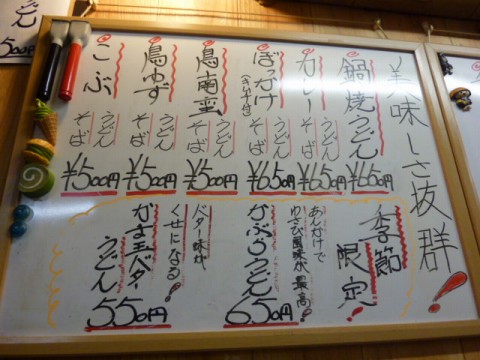 美味しさ抜群!
鍋焼うどん
¥650円
カレー
うどん
そば
¥650円
ぼっかけ
うどん
そば
¥650円
鳥南蛮
うどん
そば
¥500円
鳥ゆず
うどん
そば
¥500円
こぶ
うどん
そば
¥500円
季節
限定!
あんかけで
わさび風味が最高!
かぶらうどん
650円
バター味が、
くせになる!
かま玉バター
うどん
550円
うどん
500円